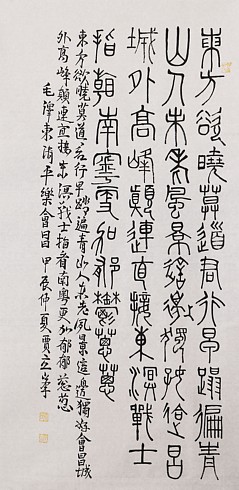 東方欲曉莫道君行早蹋徧青
山人未老風景這邊獨好會昌
城外高峰顛連直接東溟戰士
指看南粵更加郁鬱蔥蔥
東方欲曉莫道君行早踏遍青山人未老風景這邊獨好會昌城
外高峰顛連直接東溟戰士指看南粵更加郁郁葱葱
毛澤東清平樂會昌 甲辰仲夏賈立峯